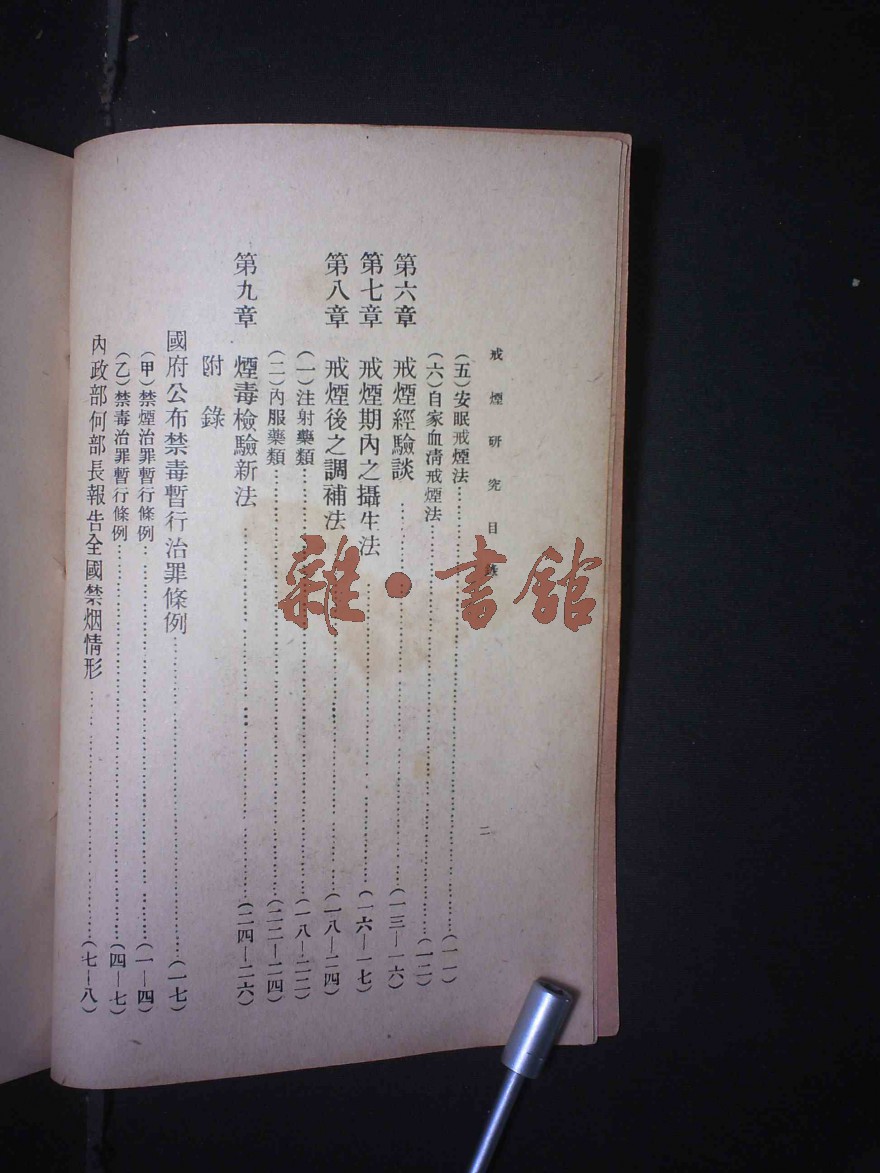 戒煙研究目錄
二
(五)安眠戒煙法……(一一)
(六)自家血清戒煙法……(一二)
第六章 戒煙經驗談……(一三—一六)
第七章 戒煙期內之攝生法……(一六—一七)
第八章 戒煙後之調補法……(一八—二四)
(一)注射藥類……(一八—二二)
(二)內服藥類……(二二—二四)
第九章 煙毒檢驗新法……(二四—二六)
附錄
國府公布禁毒暫行治罪條例……(一七)
(甲)禁煙治罪暫行條例……(一—四)
(乙)禁毒治罪暫行條例……(四—七)
內政部何部長報告全國禁烟情形……(七—八)
雜·書館